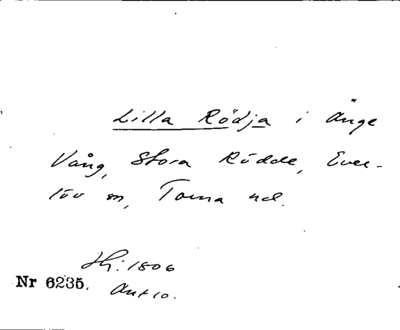 Lilla Rödja i Änge
Vång, Stora Rödde, Ever-
löv sn, Torna hd.
Hi: 1806
Nr 6235. Akt 10.